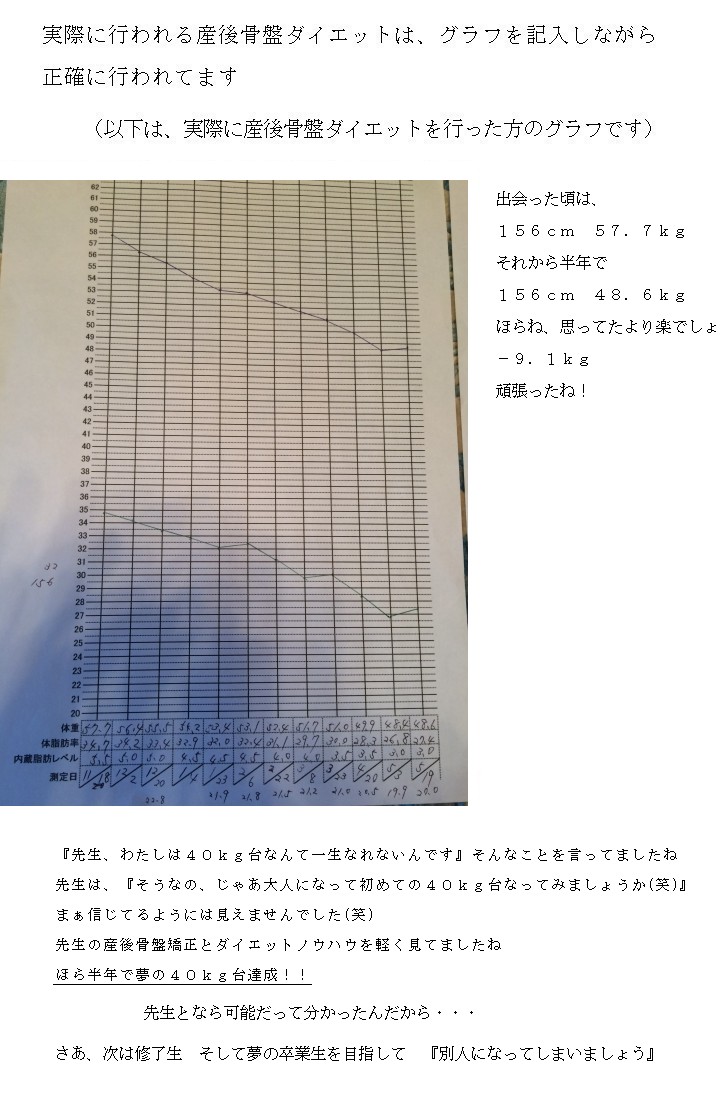 実際に行われる産後骨盤ダイエットは、グラフを記入しながら
正確に行われてます
（以下は、実際に産後骨盤ダイエットを行った方のグラフです）
出会った頃は、
１５６ｃｍ　５７．７ｋｇ
それから半年で
１５６ｃｍ　４８．６ｋｇ
ほらね、思ってたより楽でしょ
－９．１ｋｇ
頑張ったね！
62
61
60
59
58
57
56
55
54
53
52
51
50
49
48
47
46
45
44
43
42
41
40
39
38
37
36
35
34
33
32
31
30
29
28
27
26
25
24
23
22
21
20
156
体重 57.7 56.4 55.5 54.2 53.4 53.1 52.4 51.7 51.0 49.9 48.4 48.6
体脂肪率 34.7 34.2 33.4 32.9 32.0 32.4 31.1 29.7 30.0 28.3 26.8 27.4
内蔵脂肪レベル 5.5 5.0 5.0 4.5 4.5 4.5 4.0 4.0 3.5 3.5 3.0 3.0
測定日 11/18 12/2 12/20 1/4 1/23 2/6 2/22 3/8 3/23 4/20 5/3 5/19
22.8 21.9 21.8 21.5 21.2 21.0 20.5 19.9 20.0
『先生、わたしは４０ｋｇ台なんて一生なれないんです』そんなことを言ってましたね
先生は、『そうなの、じゃあ大人になって初めての４０ｋｇ台なってみましょうか(笑)』
まぁ信じてるようには見えませんでした(笑)
先生の産後骨盤矯正とダイエットノウハウを軽く見てましたね
ほら半年で夢の４０ｋｇ台達成！！
先生となら可能だって分かったんだから・・・
さあ、次は修了生　そして夢の卒業生を目指して　『別人になってしまいましょう』